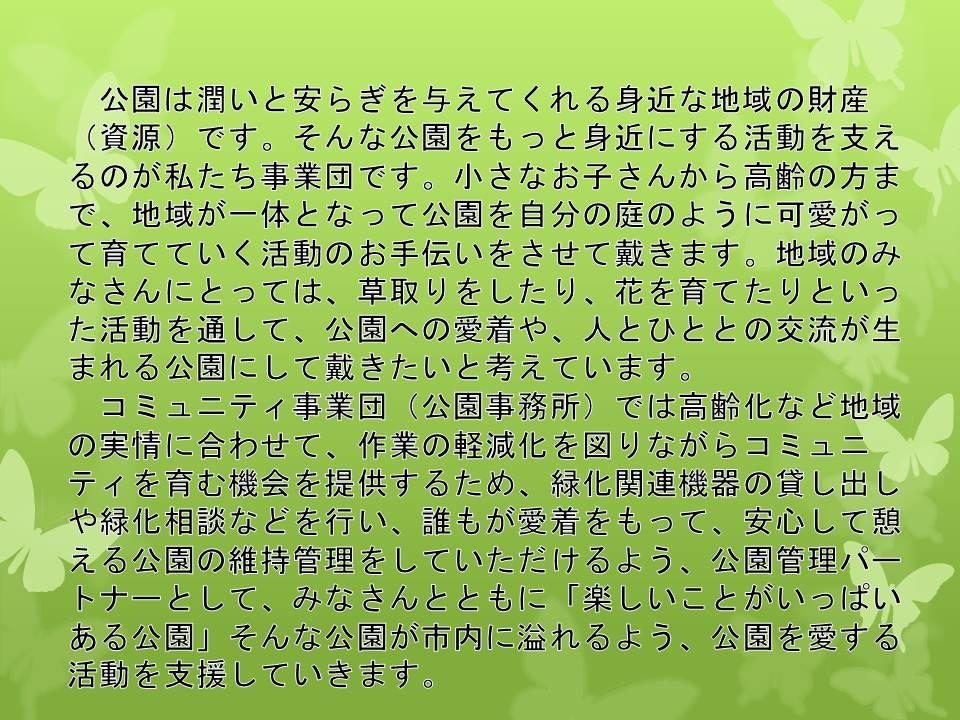 公園は潤いと安らぎを与えてくれる身近な地域の財産
（資源）です。そんな公園をもっと身近にする活動を支え
るのが私たち事業団です。小さなお子さんから高齢の方ま
で、地域が一体となって公園を自分の庭のように可愛がっ
て育てていく活動のお手伝いをさせて戴きます。地域のみ
なさんにとっては、草取りをしたり、花を育てたりといっ
た活動を通して、公園への愛着や、人とひととの交流が生
まれる公園にして戴きたいと考えています。
　コミュニティ事業団（公園事務所）では高齢化など地域
の実情に合わせて、作業の軽減化を図りながらコミュニ
ティを育む機会を提供するため、緑化関連機器の貸し出し
や緑化相談などを行い、誰もが愛着をもって、安心して憩
える公園の維持管理をしていただけるよう、公園管理パー
トナーとして、みなさんとともに「楽しいことがいっぱい
ある公園」そんな公園が市内に溢れるよう、公園を愛する
活動を支援していきます。